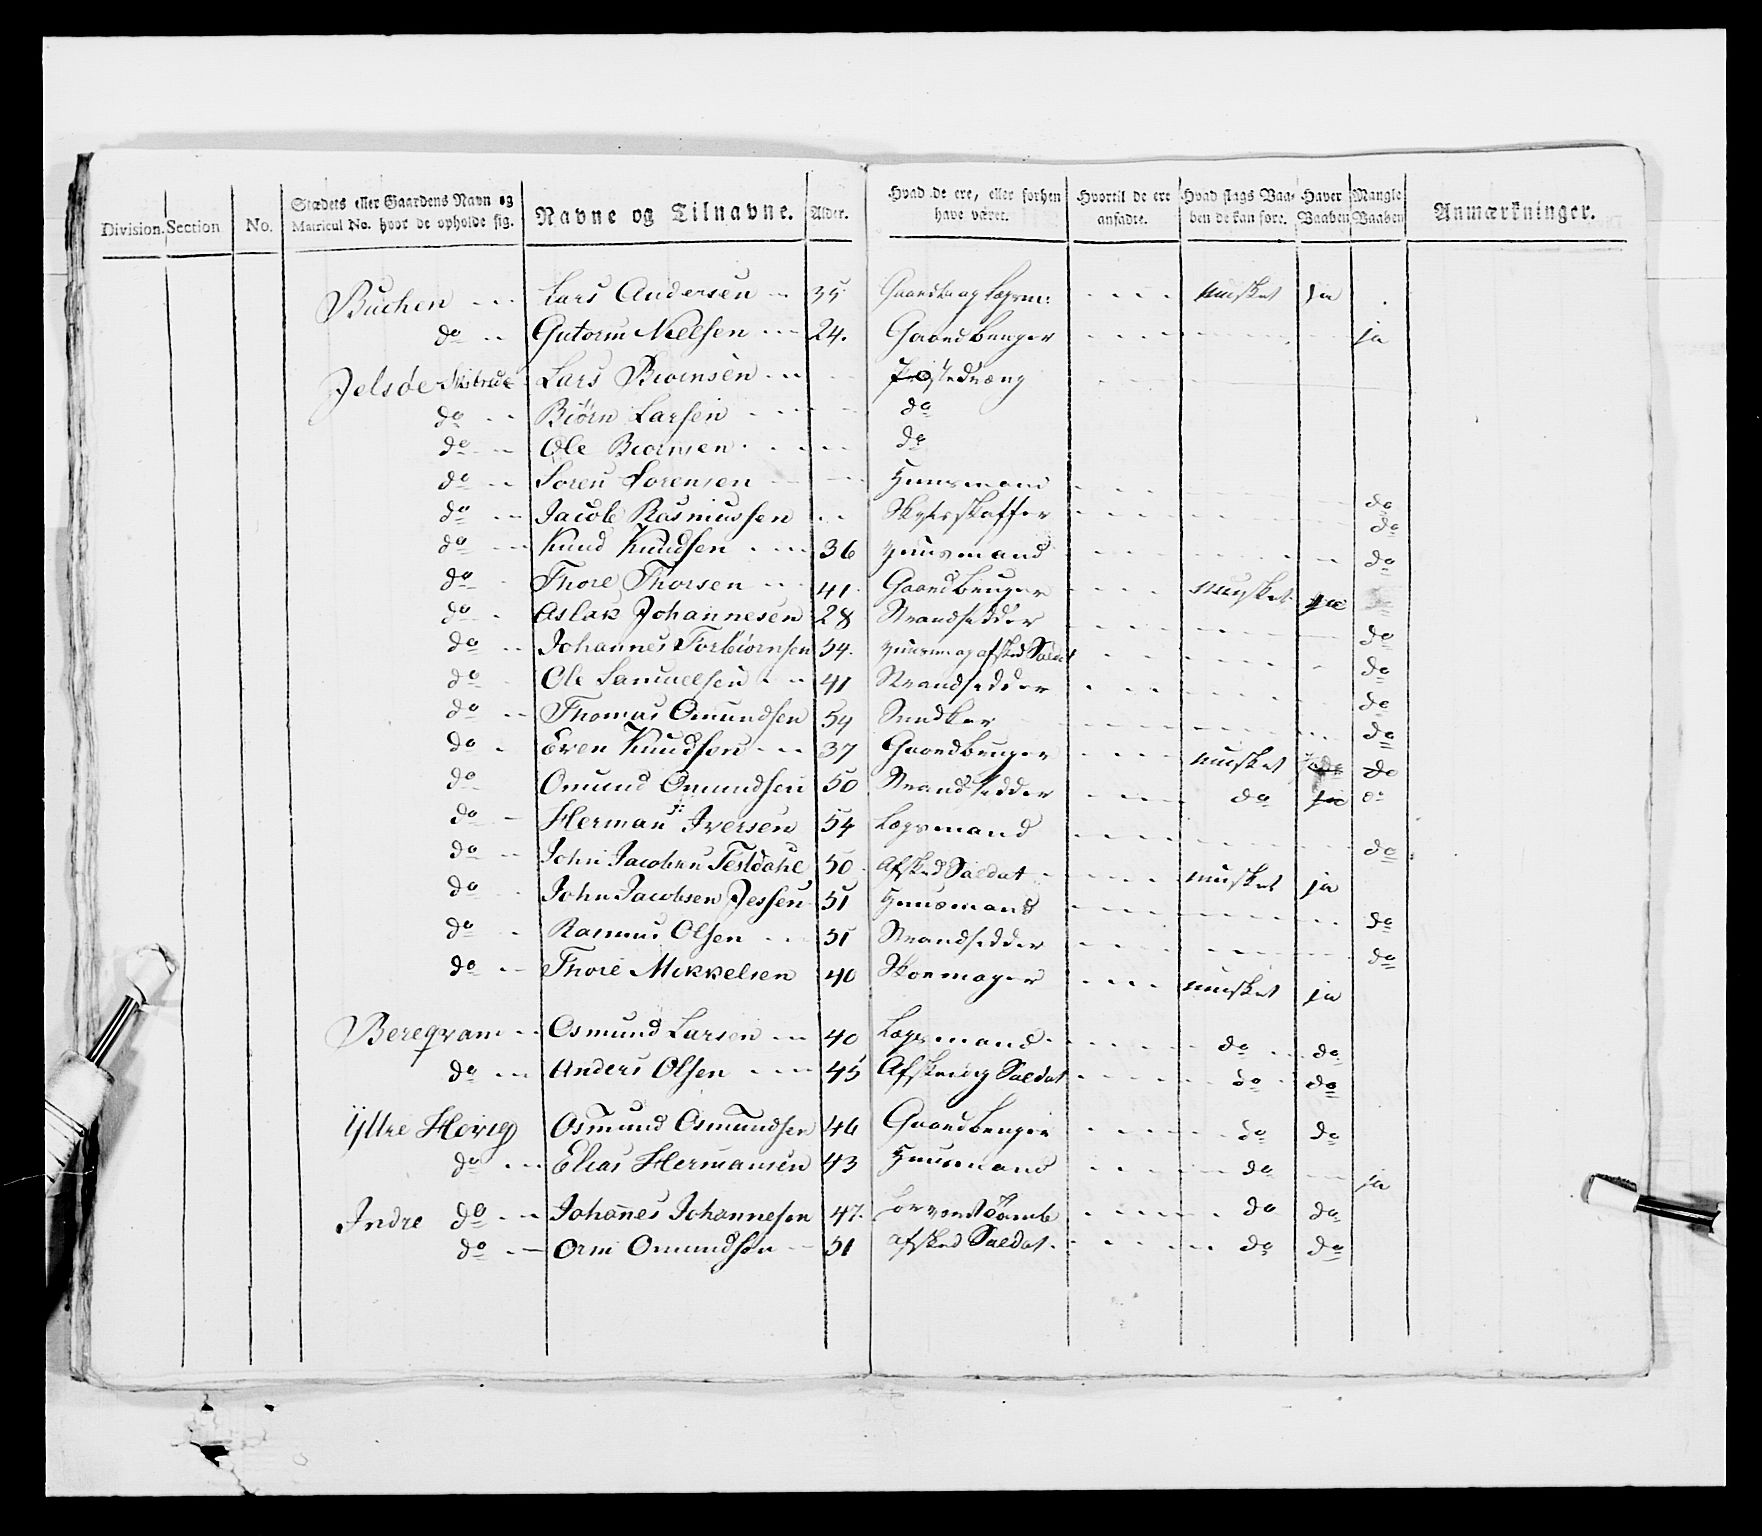 Division. Section No. Stædets eller Gaardens Navn og Matricul No. hvor de opholde sig. Navne og Tilnavne. Alder. Hvad de ere, eller forhen have været. Hvortil de ere ansadte. Hvad slags Vaaben de kan føre. Haver Vaaben Mangle Vaaben Anmærkninger.
Buchen Lars Andersen 35 musket ja
do Gutorm Nielsen 24. Gaardbruger ja
Jelsøe Lars Biørnsen
do Biørn Larsen do
do Ole Biørnsen do
do Soren Sorensen Huusmand do
do Jacob Rasmussen Skydsskaffer do
do Knud Knudsen 36 Huusmand do
do Thore Thorsen 41. Gaardbruger musket ja
do Aslak Johannesen 28 Strandsidder do
do Johannes Torbiørnsen 54. Huusm og afsked Saldat do
do Ole Samuelsen 41 Strandsidder do
do Thomas Omundsen 54 Snedker do
do Even Knudsen 37 Gaardbruger musket do
do Omund Omundsen 50 Strandsidder do ja do
do Herman Iversen 54 Lægsmand do
do John Jacobsen 50 Afsked Saldat musket ja
do John Jacobsen Jessen 51 Huusmand do
do Rasmus Olsen 51 Strandsidder do
do Thore Mikkelsen 40 Skoemager musket ja
Bereqvam Osmund Larsen 40 Lægsmand do do
do Anders Olsen 45 Saldat do do
Yttre Hevig Osmund Osmundsen 46 Gaardbruger do do
do Elias Hermansen 43 Huusmand do ja
Indre do Johannes Johannesen 47. do do
do Orm Omundsen 51 afsked Saldat. do do